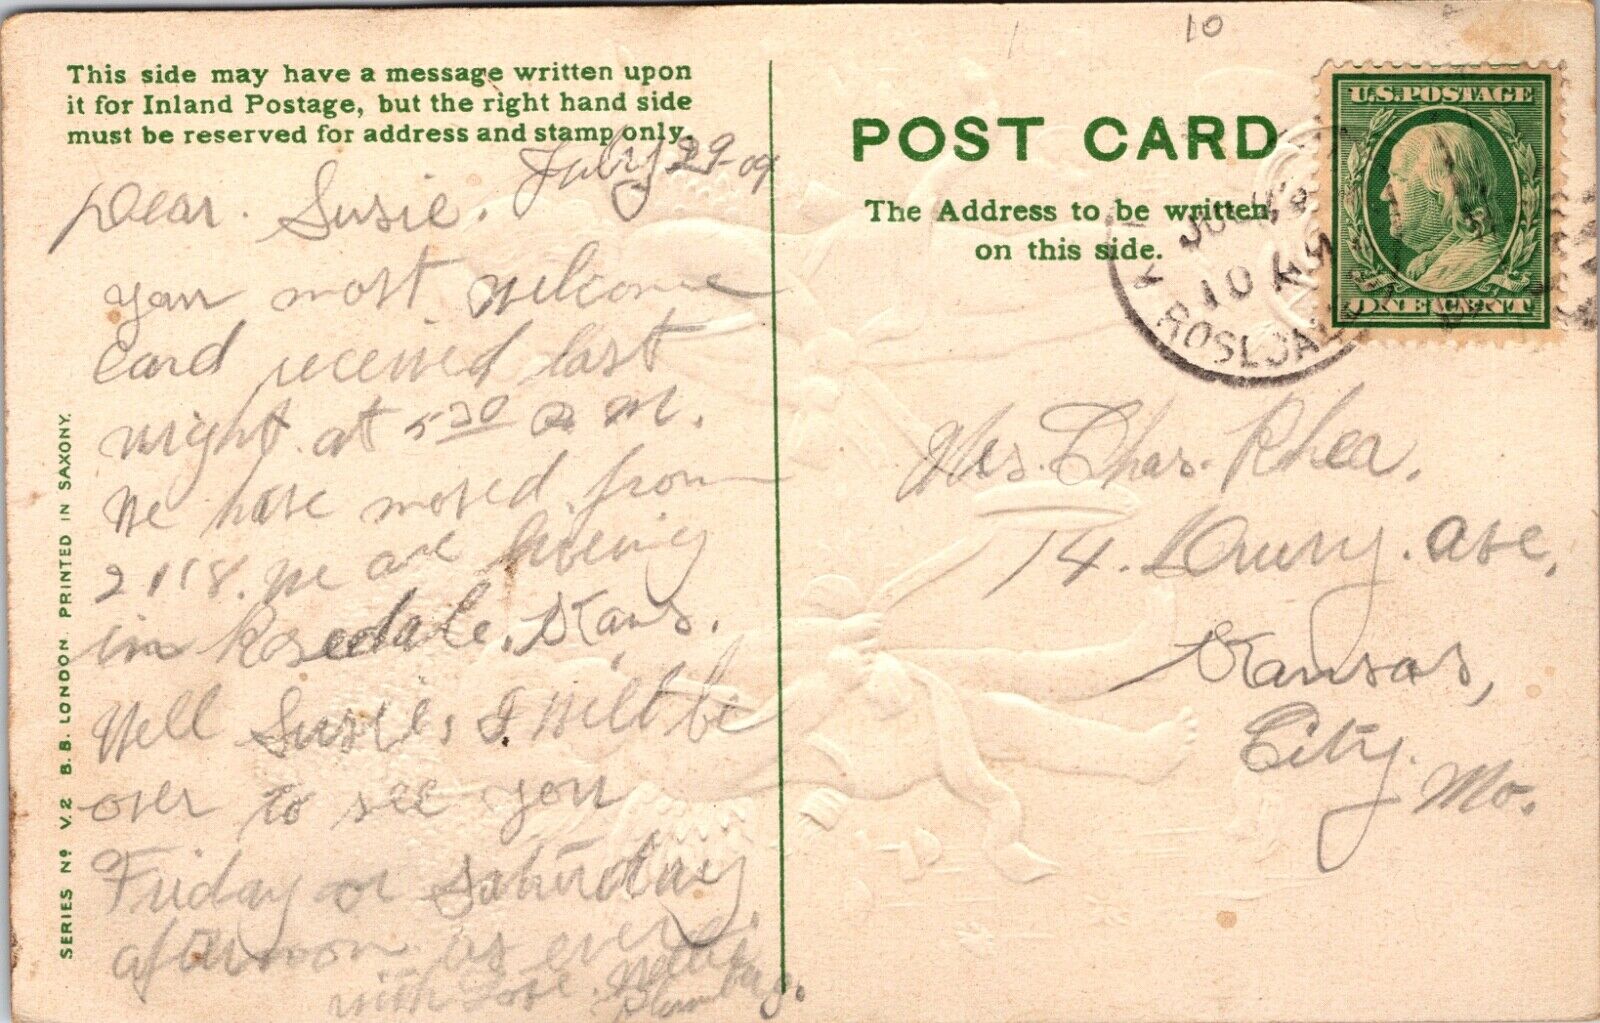 10
This side may have a message written upon
it for Inland Postage, but the right hand side
must be reserved for address and stamp only.
July 29-09
Dear. Susie.
your most welcome
card received last
night at 5 30 P. M.
We have moved from
2118. We are liveing
in Rosedale. Kans.
Well Susie, I will be
over to see you
Friday or Saturday
afternoon as ever.
with Love. Nettie
SERIES Nº V.2 B.B. LONDON PRINTED IN SAXONY.
POST CARD
The Address to be written
on this side.
U.S. POSTAGE
ONE CENT
10 AM
ROSEDALE
Mrs. Chas. Rhea.
14. Drury. ave,
Kansas,
City.
Mo.